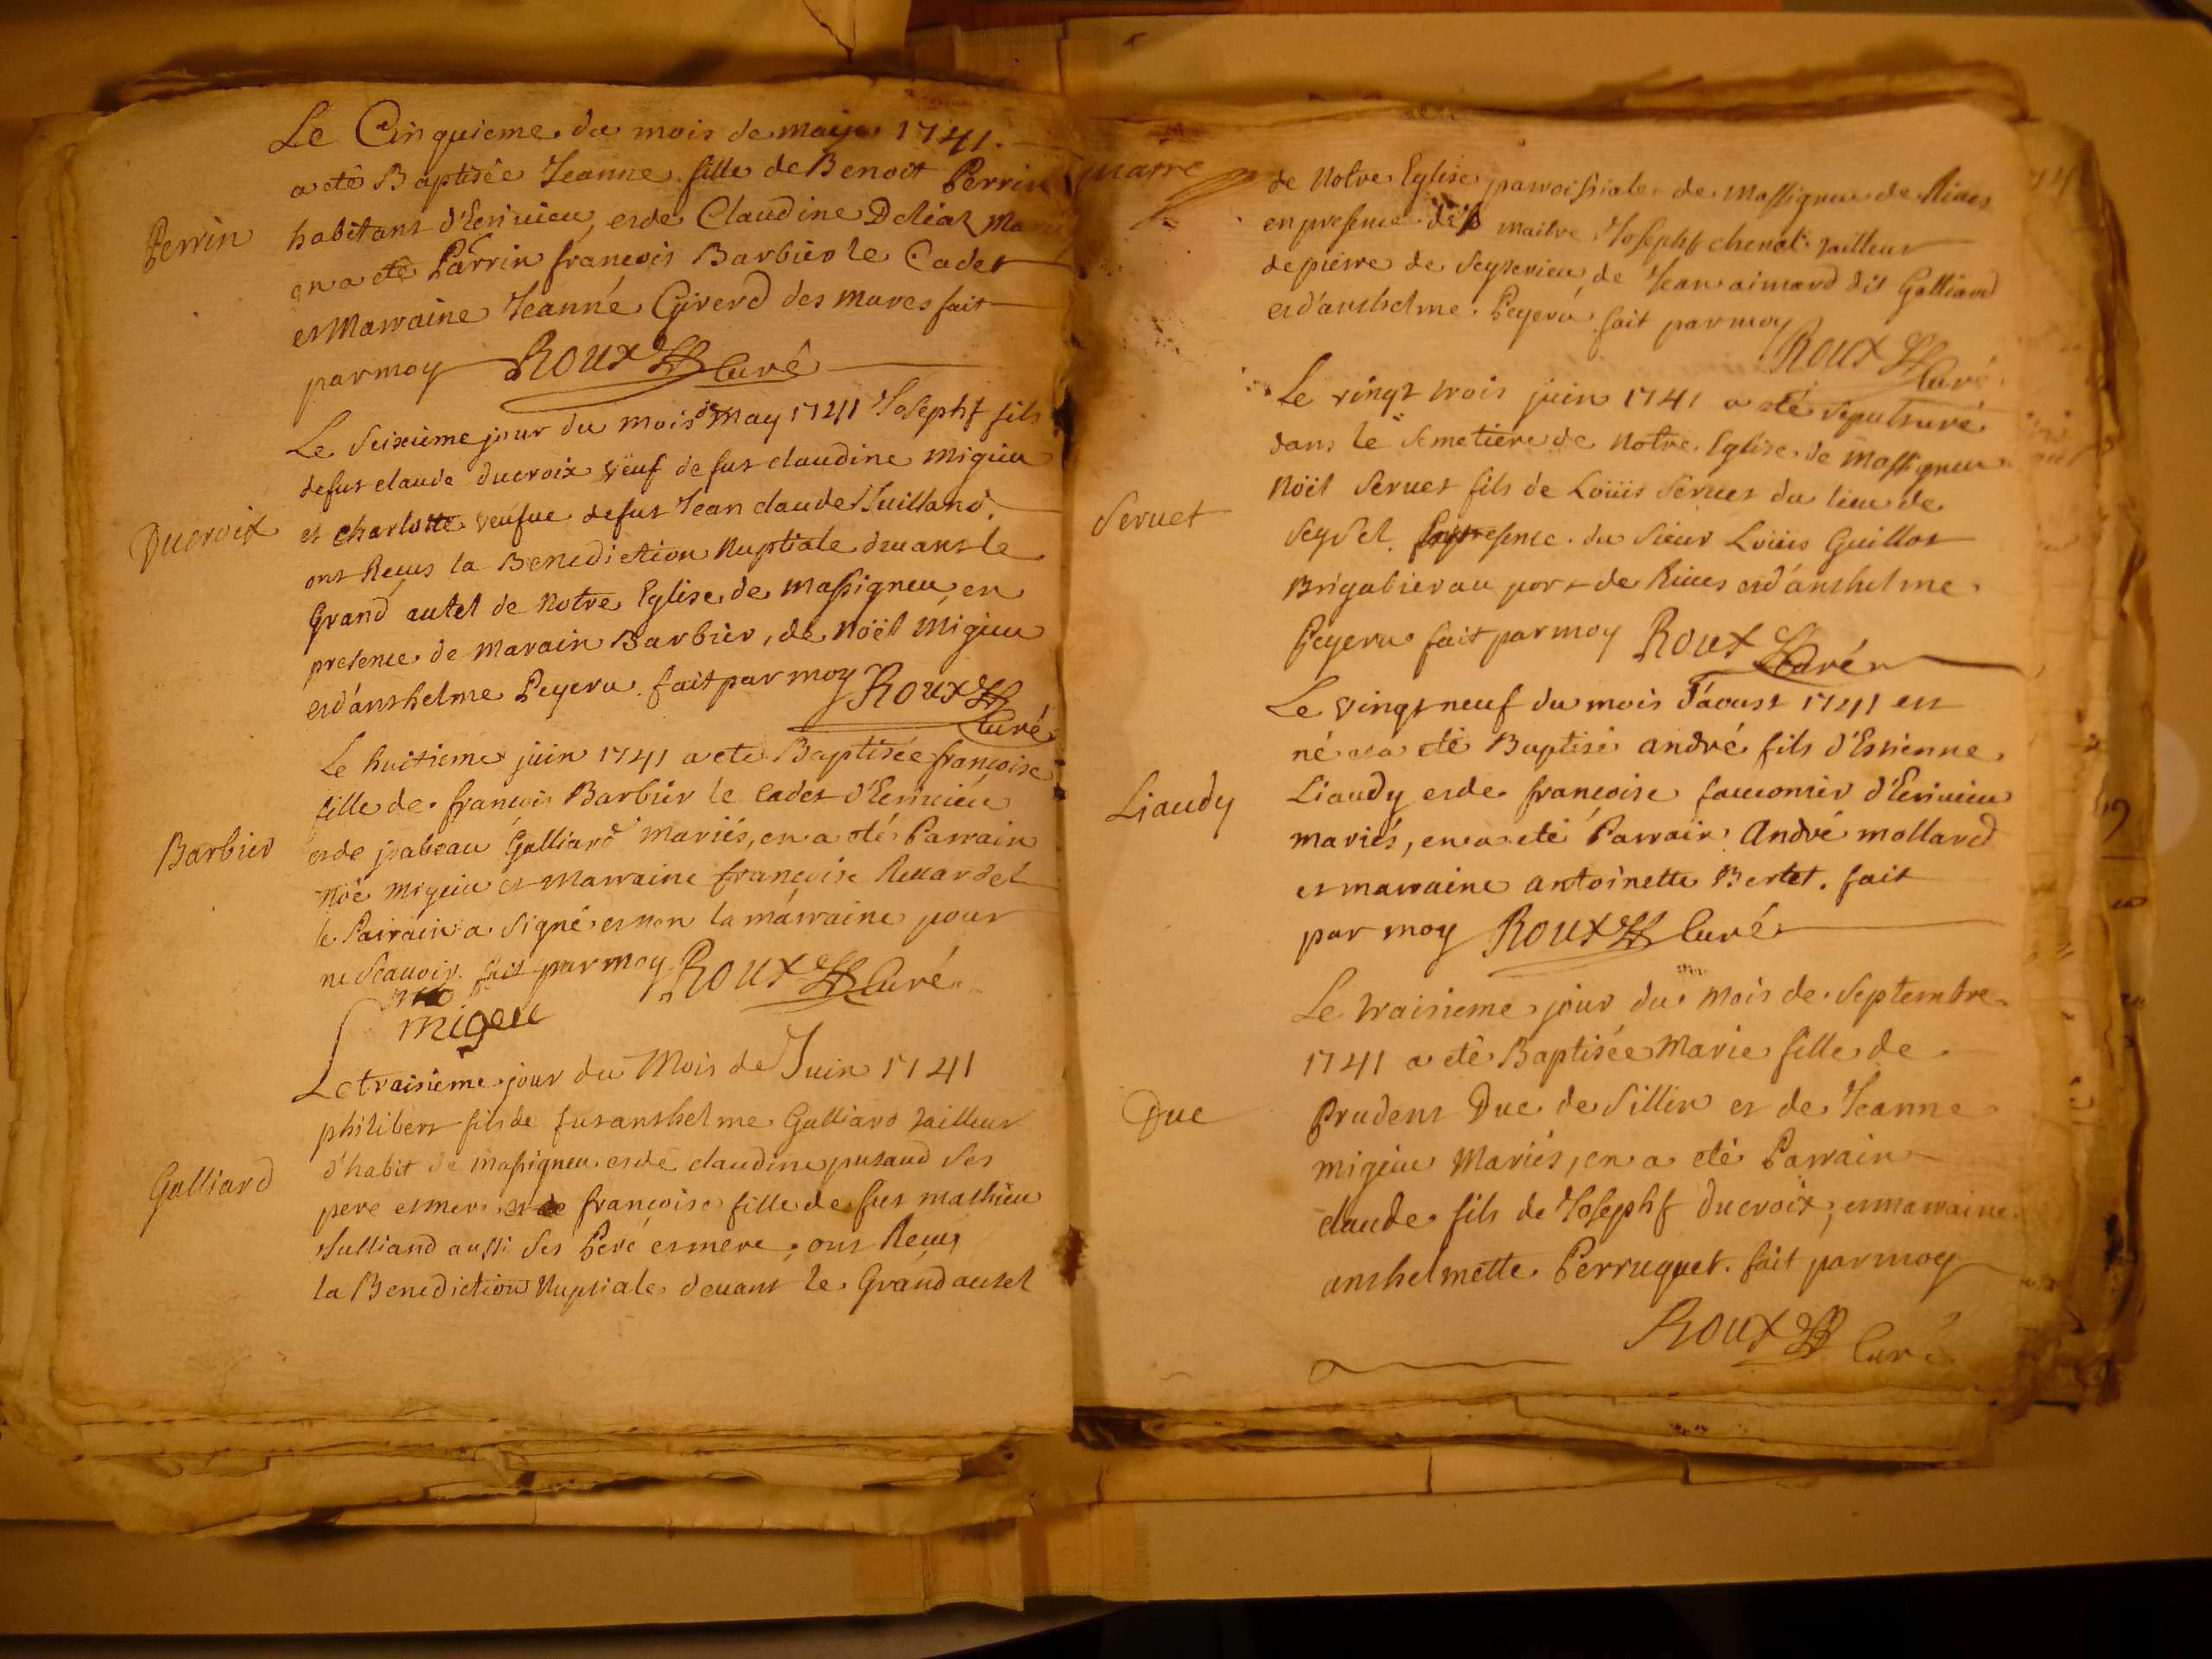 Le Cinquieme du mois de may 1741.
a eté Baptisée Jeanne fille de Benoit Perrin
Perrin
habitans d'Ecrivieu, et de Claudine Deliat
en a eté Parrin francois Barbier le Cadet
et Marraine Jeanne Girerd des mures fait
par moy Roux Curé
Le Seixieme jour du mois de May 1741 Josephf fils
defut claude ducroix veuf de fut claudine migieu
Ducroix
et charlotte veufue defut Jean claude Juilland.
ont Reçus la Benediction Nuptiale devant le
Grand autel de Notre Eglise de Massigneu en
presence de Marain Barbier, de Noël Migieu
et d'anthelme Peyeru. fait par moy Roux
Curé
Le huitieme juin 1741 a eté Baptisée françoise
fille de françois Barbier le Cadet d'Ecrivieu
Barbier
et de jsabeau Galliard mariés, en a eté Parrain
Noé Migieu et Marraine françoise Revardel
le Parrain a signé et non la marraine pour
ne scauoir. fait par moy Roux Curé
migeu
Le traisieme jour du Mois de Juin 1741
philibert fils de fut anthelme Galliard tailleur
d'habit de massigneu et de claudine putaud ses
Galliard
pere et mere et de françoise fille de fut mathieu
Julliand aussi ses Peré et mere, ont Reçus
la Benediction Nuptiale devant le Grand autel
de Notre Eglise parroissiale de Massigneu de Rives
en presence de maitre Josephf chenat tailleur
de pierre de Seyserieu, de Jean aimard dit Galliard
et d'anthelme Peyeru fait par moy
Roux Curé
Le vingt trois juin 1741 a eté sepulturé
dans le Semetiere de Notre Eglise de Massigneu
Servet
Noël Servet fils de Loüis Servet du lieu de
Seysel. En presence du Sieur Loüis Guillot
Brigadier au port de Rives et d'anthelme
Peyeru fait par moy Roux Curé
Le vingt neuf du mois d'aoust 1741 est
né et a eté Baptisé andré fils d'Estienne
Liaudy
Liaudy et de françoise fauconnier d'Ecrivieu
mariés, en a eté Parrain André mollard
et marraine antoinette Bertet. fait
par moy Roux Curé
Le traisieme jour du Mois de Septembre
1741 a eté Baptisée Marie fille de
Duc
Prudent Duc de Sillin et de Jeanne
migieu Mariés, en a eté Parrain
claude fils de Josephf ducroix, et marraine
anthelmette Perruquet. fait par moy
Roux Curé